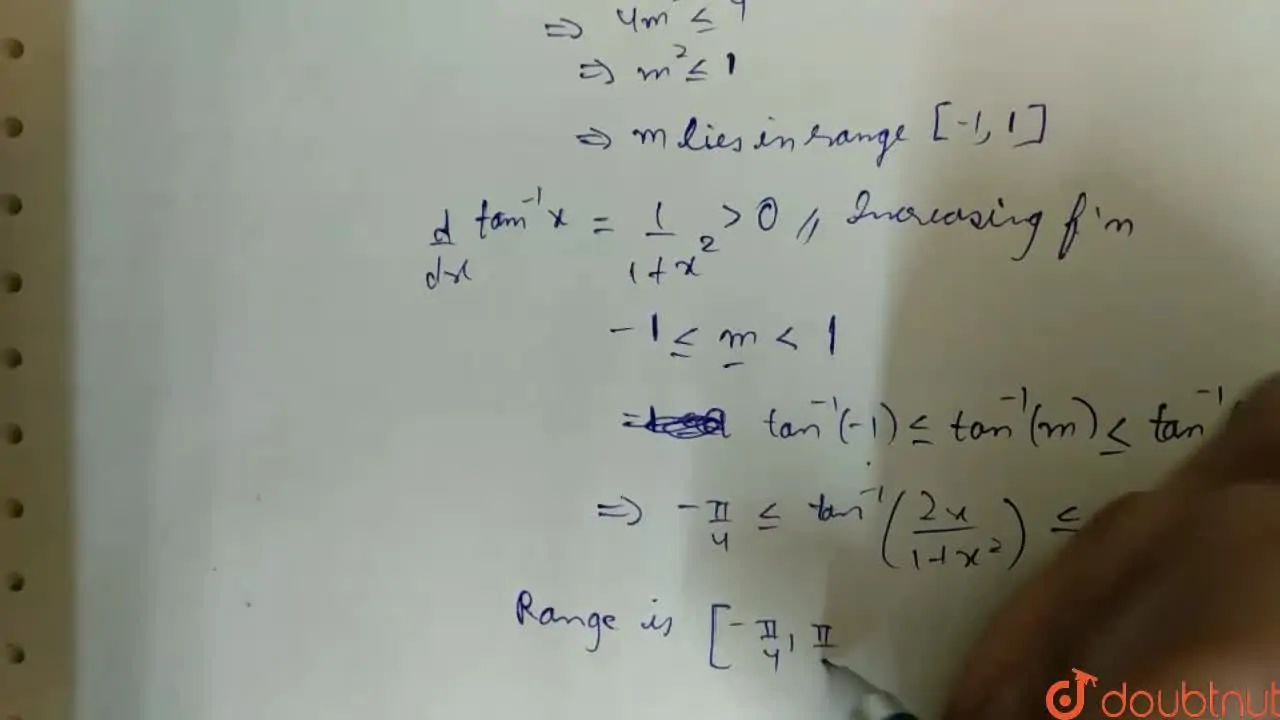 ⇒ 4m² ≤ 4
⇒ m² ≤ 1
⇒ m lies in range [-1, 1]
d/dx tan⁻¹x = 1/(1+x²) > 0 // Increasing f'n
-1 ≤ m < 1
tan⁻¹(-1) ≤ tan⁻¹(m) ≤ tan⁻¹(
⇒ -π/4 ≤ tan⁻¹(2x/(1+x²)) ≤
Range is [-π/4, π
doubtnut